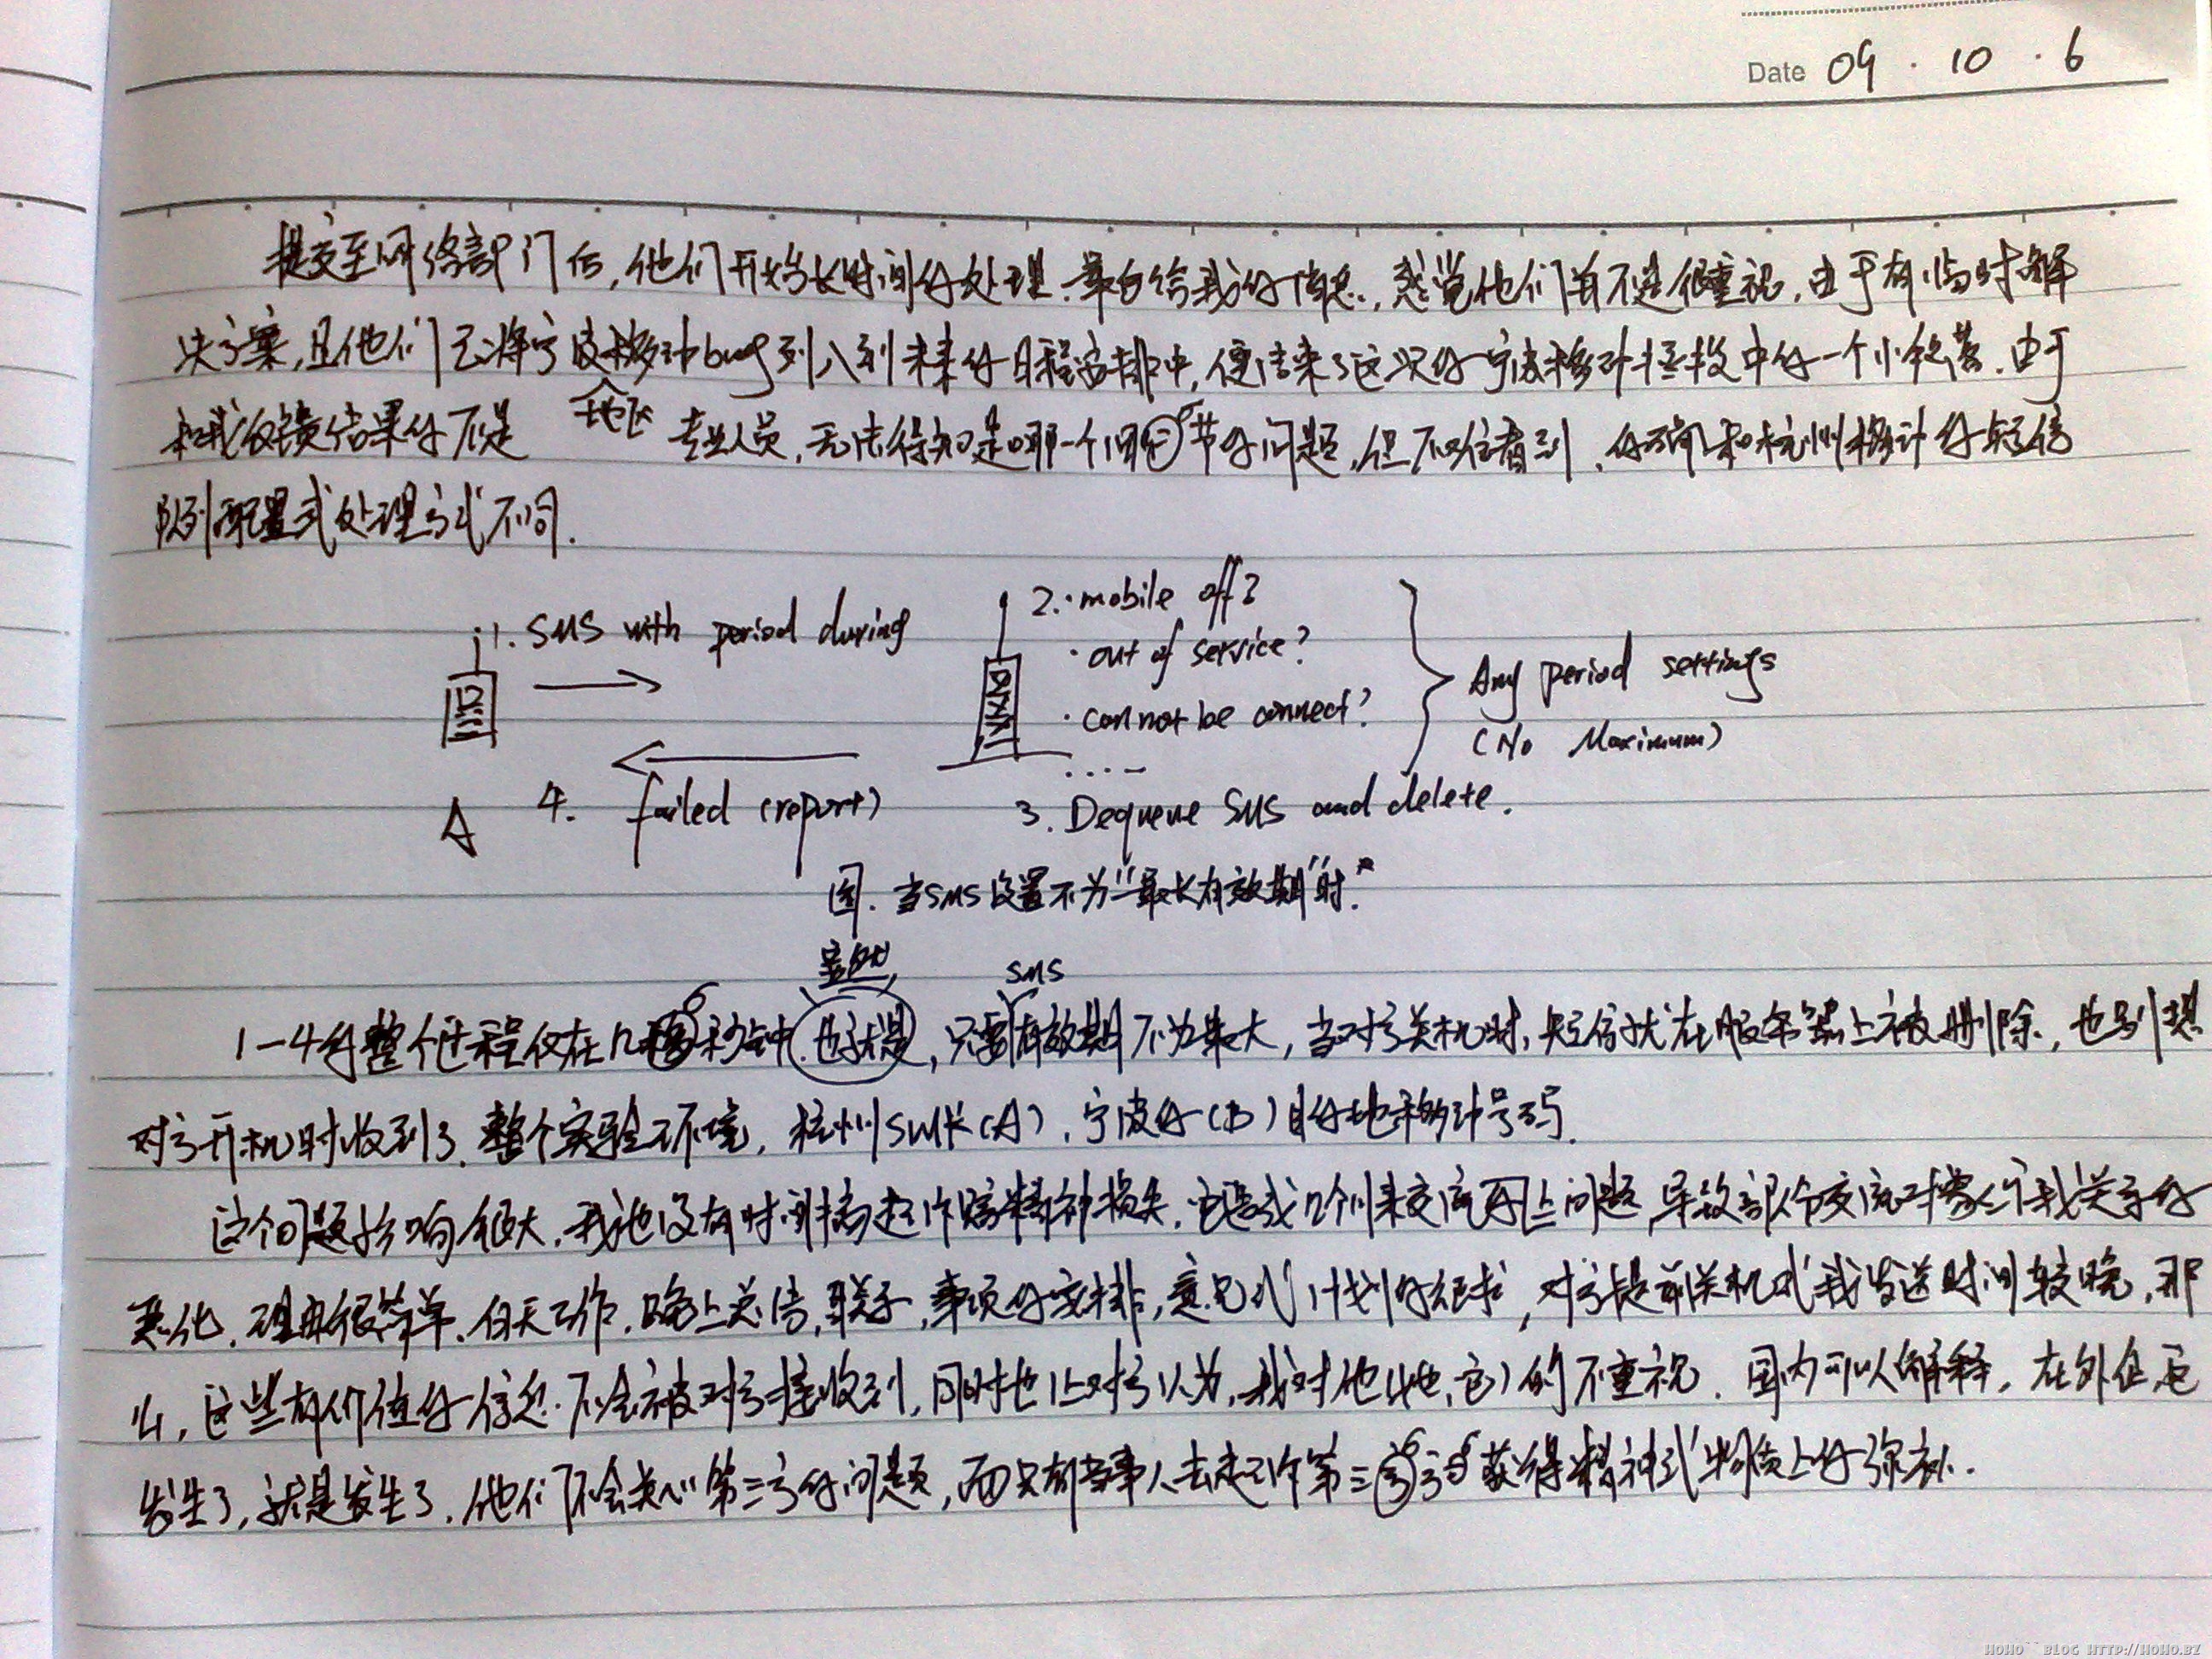 Date 09 · 10 · 6
提交至网络部门后，他们开始长时间的处理。单句给我的信息，感觉他们并不是很重视，由于有临时解
决方案，且他们已将宁波移动bug列入到未来的日程安排中，便结束了这次的宁波移动 中的一个小轮 。由于
地区
和我反馈结果的不是 专业人员，无法得知是哪一个 节的问题，但不难看到， 和杭州移动的短信
队列配置或处理方式不同.
1. SMS with period during
2. · mobile off?
· out of service?
· cannot be connect?
....
Any period settings
(No Maximum)
A
4. failed (report)
3. Dequeue SMS and delete.
图. 当SMS设置不为“最长有效期”时.*
显然,
SMS
1-4的整个过程仅在几 秒钟.也就是,只要有效期不为最大，当对方关机时，短信就在服务器上被删除，也别想
对方开机时收到了.整个实验环境，杭州SIM卡(A)，宁波的(B)目的地移动号码.
这个问题影响很大.我也没有时间搞起诉赔精神损失.它造成几个月来交流 上问题，导致部分交流对象 我关系的
恶化，理由很简单.白天工作.晚上总结,联系,事项的安排,意见或计划的 ,对方提前关机或我发送时间较晚,那
么,这些有价值的信息不会被对方接收到,同时也让对方认为,我对他(她,它)的不重视.国内可以解释,在外企,
发生了,就是发生了.他们不会关心第三方的问题,而只有当事人去起诉第三方 获得精神或物质上的弥补.
HOHO`` BLOG HTTP://HOHO.BZ